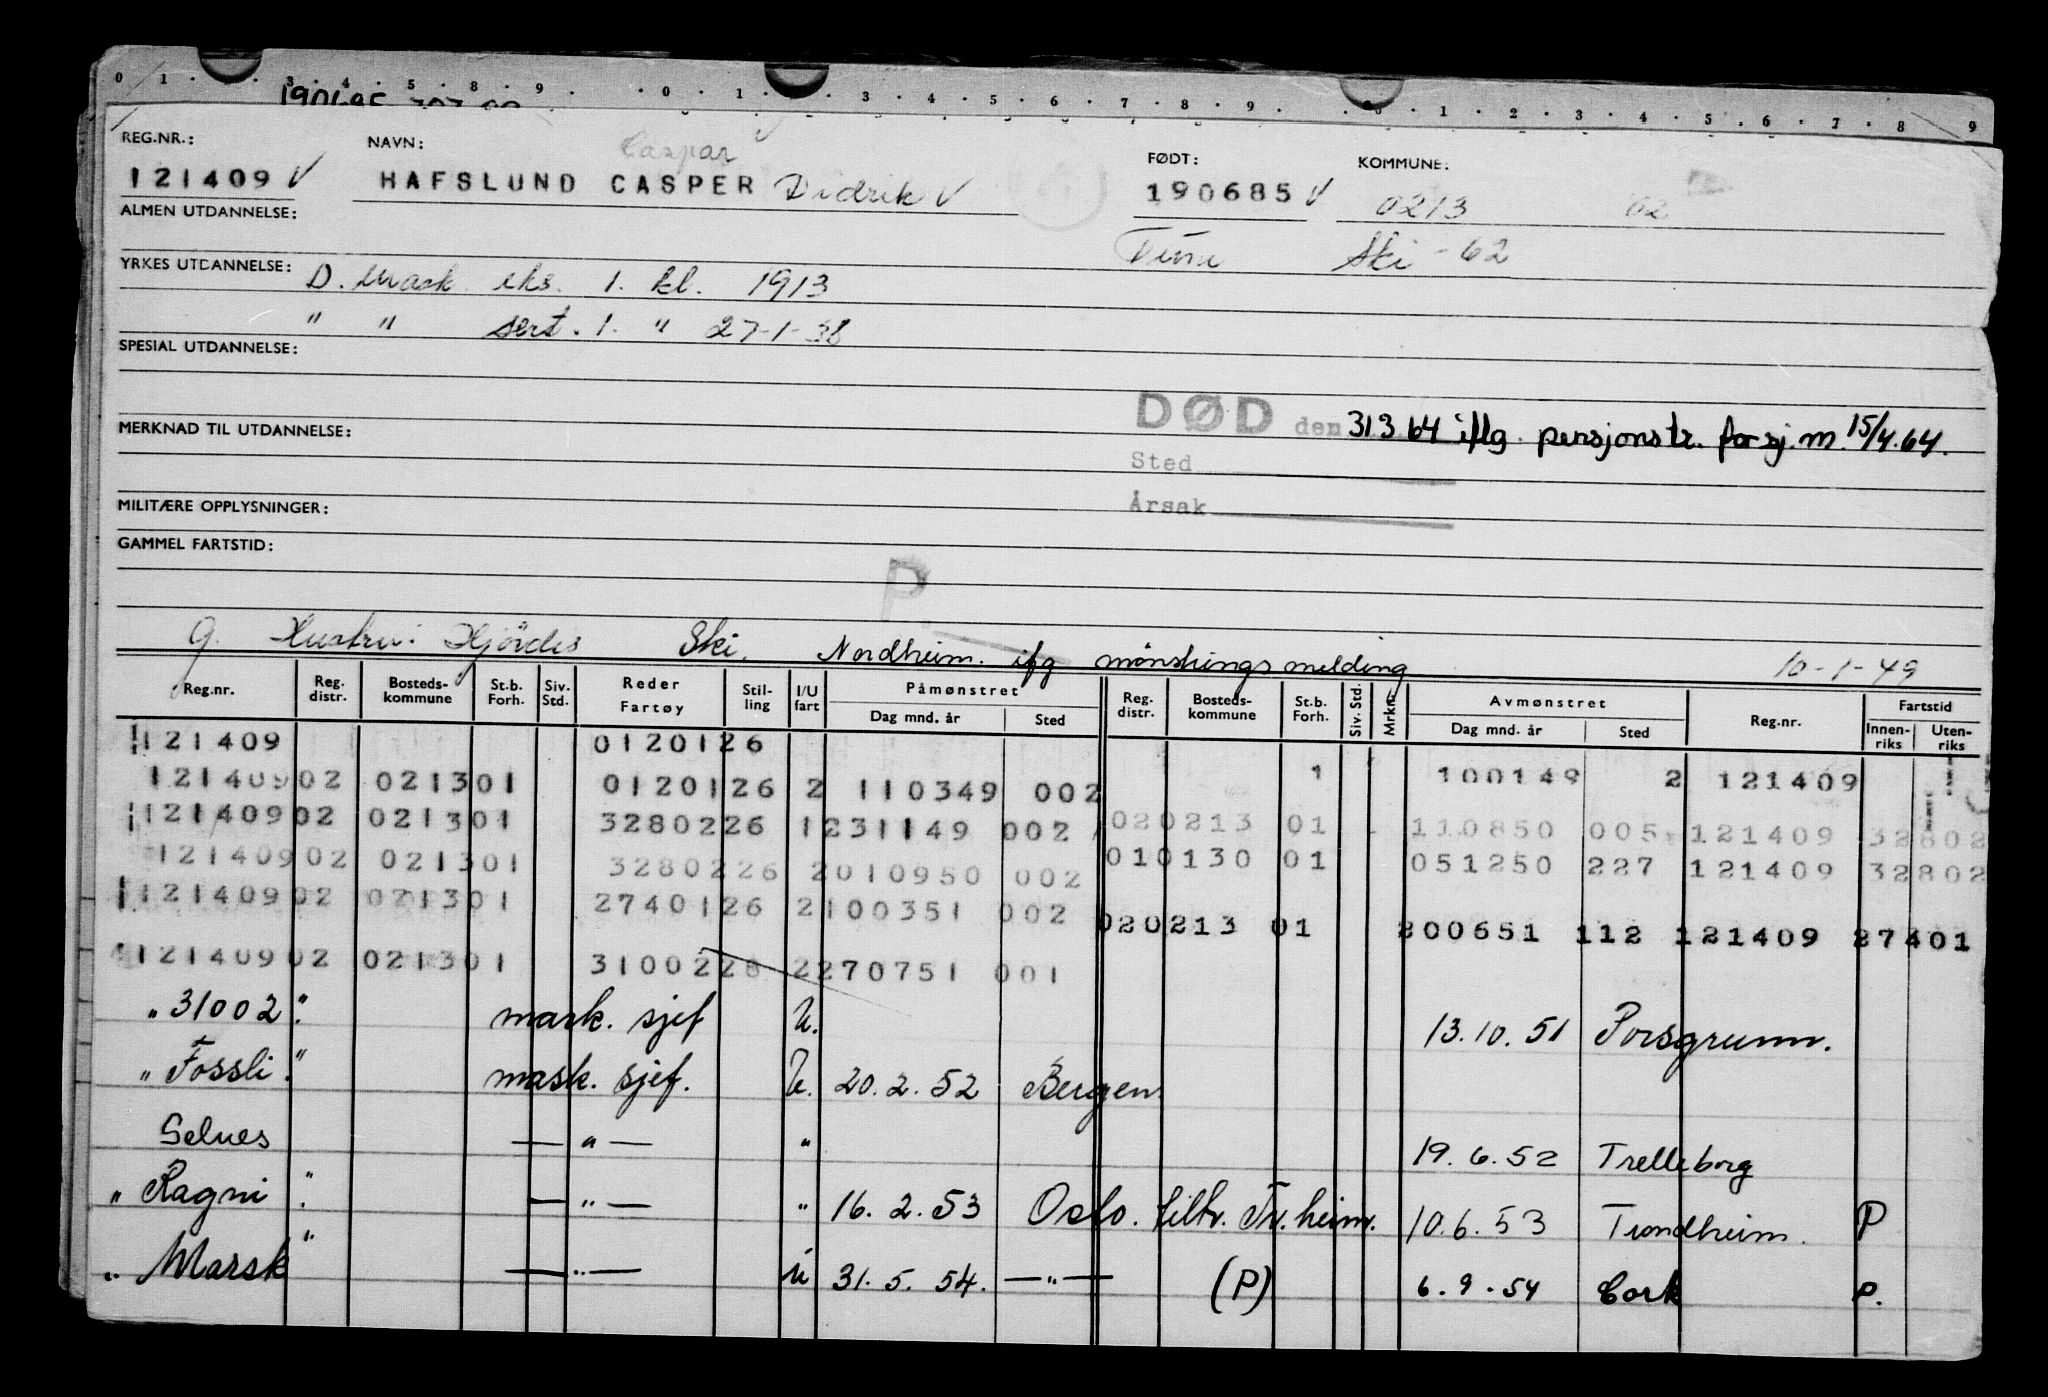 0 1 3 4 5 8 9 0 1 3 4 5 6 7 8 9 0 1 2 3 4 5 6 7 8 9
REG.NR.: NAVN: Caspar FØDT: KOMMUNE:
121409 V HAFSLUND CASPER Didrik V 190685 V 0213 02
ALMEN UTDANNELSE:
Tune Ski - 62
YRKES UTDANNELSE: D. Mask eks. 1. kl. 1913
" " sert. 1. " 27-1-38
SPESIAL UTDANNELSE:
DØD den 31 3 64 iflg. pensjonstr. for sj.m. 15/4.64.
MERKNAD TIL UTDANNELSE:
Sted
MILITÆRE OPPLYSNINGER: Årsak
GAMMEL FARTSTID:
P.
G. Hustru: Hjördis Ski. Nordheim. ifg mönstringsmelding 10-1-49
Reg.nr. Reg. distr. Bosteds- kommune St.b. Forh. Siv. Std. Reder Fartøy Stil- ling I/U fart Påmønstret Dag mnd. år Sted Reg. distr. Bosteds- kommune St.b. Forh. Siv. Std. Mrkn. Avmønstret Dag mnd. år Sted Reg.nr. Fartstid Innen- riks Uten- riks
121409 0120126
121409 02 0213 01 0120126 2 110349 002 1 100149 2 121409
121409 02 0213 01 3280226 1 231149 002 02 0213 01 110850 005 121409 32802
121409 02 0213 01 3280226 2 010950 002 01 0130 01 051250 227 121409 32802
121409 02 0213 01 2740126 2 100351 002 02 0213 01 200651 112 121409 27401
121409 02 0213 01 3100228 2 270751 001
" 31002 " mask. sjef U. 13.10.51 Porsgrunn.
" Fossli " mask. sjef. U. 20.2.52 Bergen
Selnes — " — " 19.6.52 Trelleborg
" Ragni " — " — " 16.2.53 Oslo. tiltr. Tr.heim. 10.6.53 Trondheim. P
" Marsk " — " — U 31.5.54. — " — (P) 6.9.54 Cork P.